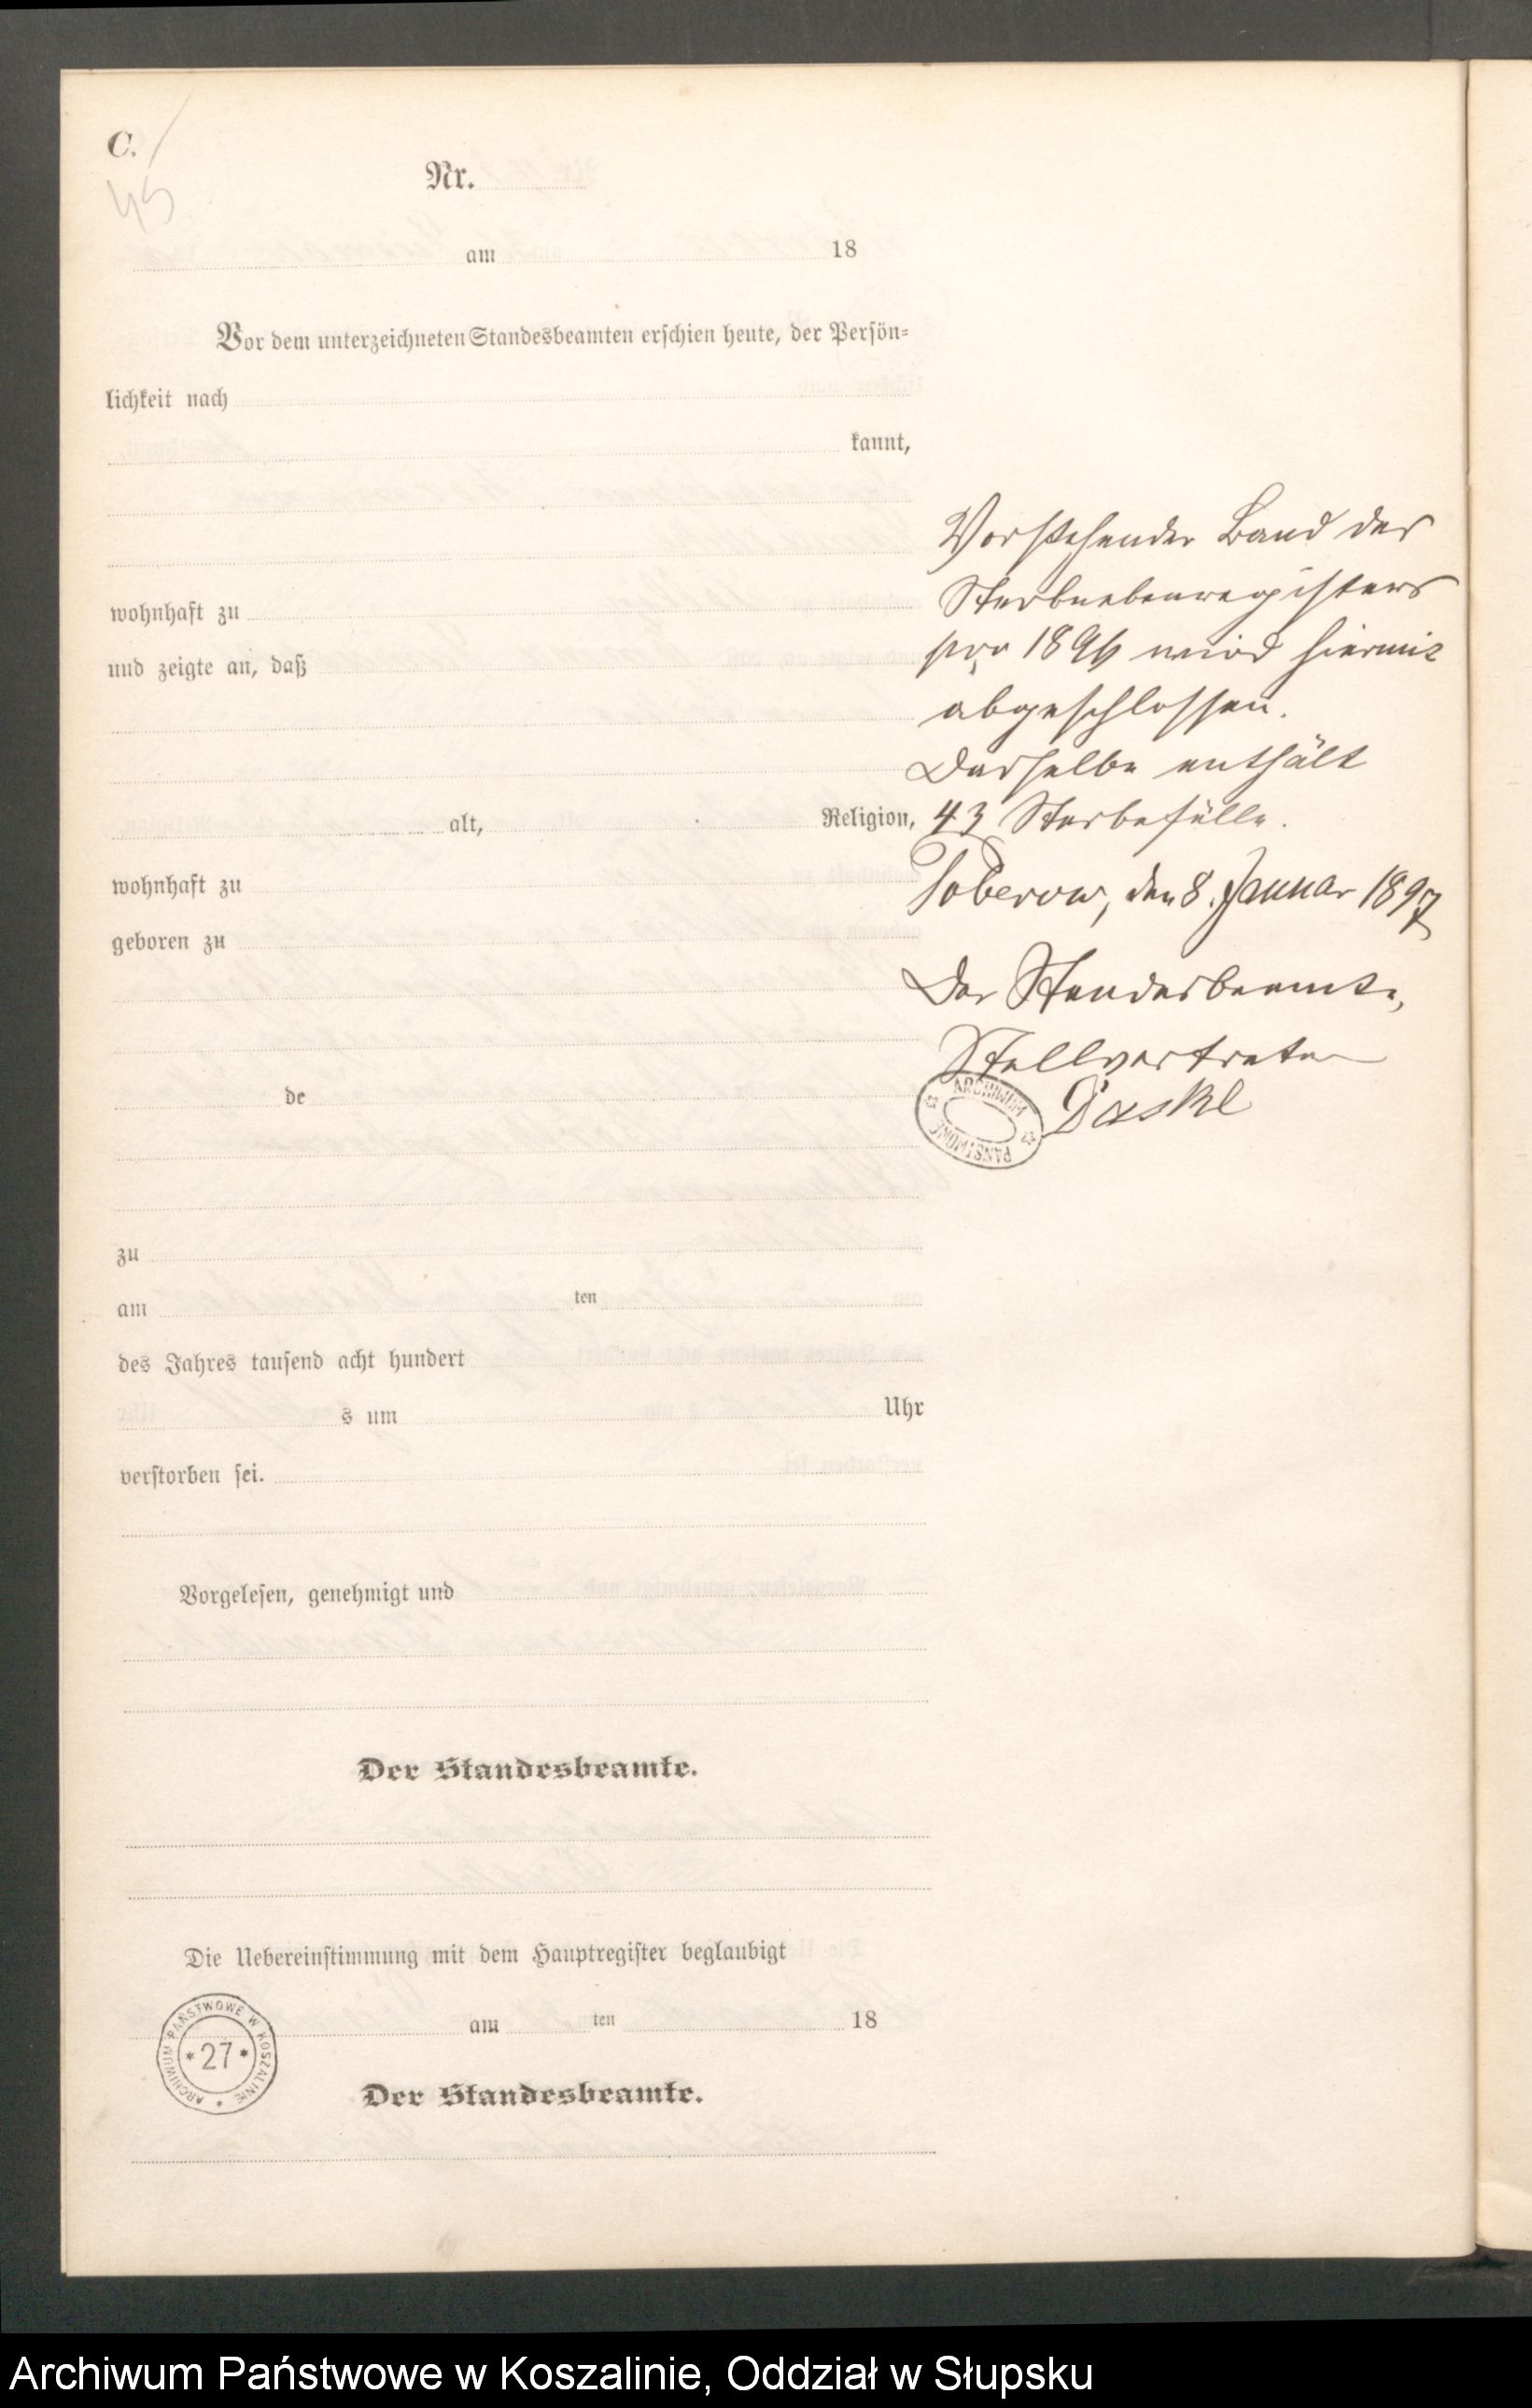 C.
45
Nr.
am 18
Vor dem unterzeichneten Standesbeamten erschien heute, der Persön=
lichkeit nach
kannt,
wohnhaft zu
und zeigte an, daß
alt, Religion,
wohnhaft zu
geboren zu
de
zu
am ten
des Jahres tausend acht hundert
s um Uhr
verstorben sei.
Vorgelesen, genehmigt und
Der Standesbeamte.
Die Uebereinstimmung mit dem Hauptregister beglaubigt
am ten 18
Der Standesbeamte.
Vorstehender Band des
Sterbenebenregisters
pro 1896 wird hiermit
abgeschlossen.
Derselbe enthält
43 Sterbefälle.
den 8. Januar 1897
Der Standesbeamte,
Stellvertreter
ARCHIWUM PAŃSTWOWE
ARCHIWUM PAŃSTWOWE W KOSZALINIE
*27*
Archiwum Państwowe w Koszalinie, Oddział w Słupsku